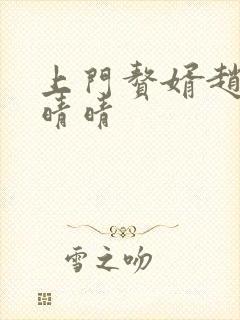 上門贅婿趙
晴晴
雪之吻